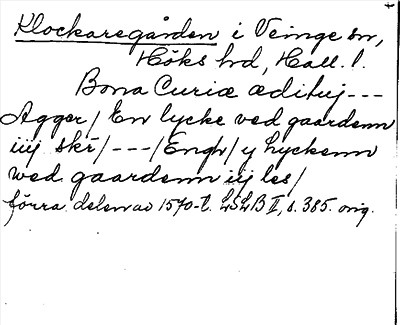 Klockaregården i Veinge sn,
Höks hd, Hall. l.
Bona Curiæ ædituj---
Agger/ En lycke ved gaardenn
iiij skr/ --- /Engh/ y hyckenn
wed gaardenn iij les/
förra delen av 1570-t. LSLB II, s. 385. orig.